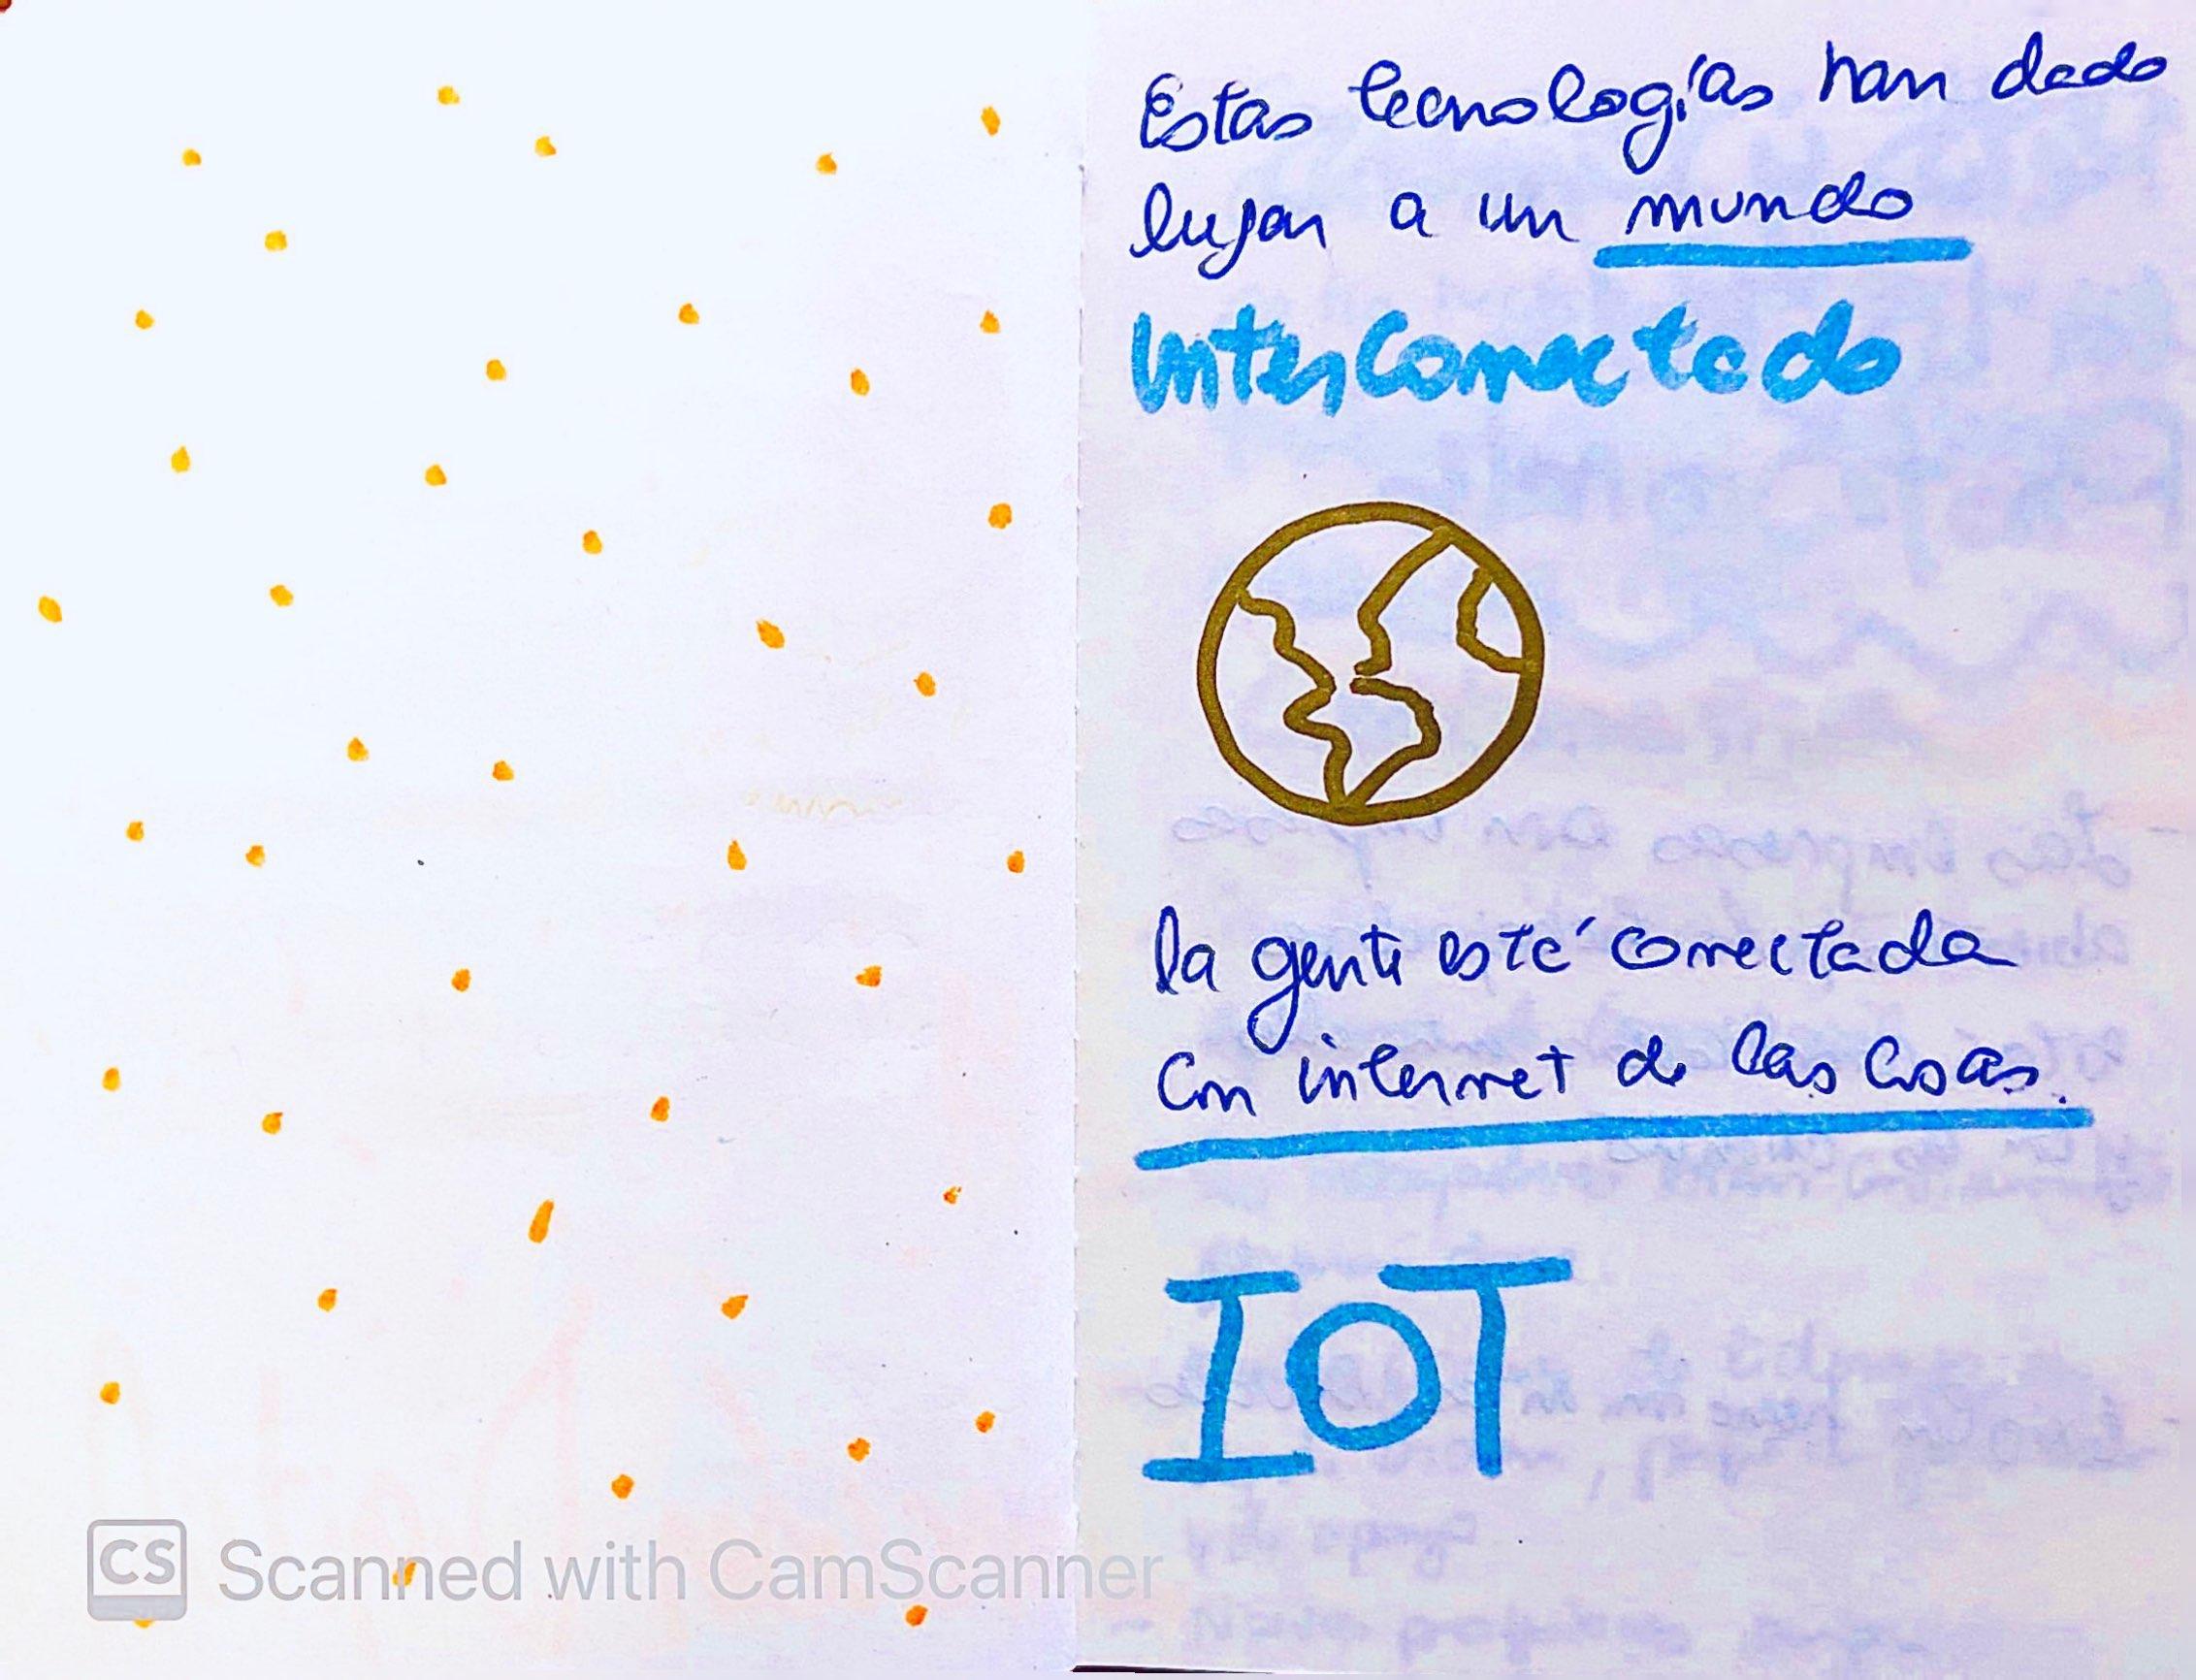 Estas tecnologías han dado
lugar a un mundo
InterConectado
la gente está conectada
con internet de las cosas.
IOT
CS Scanned with CamScanner